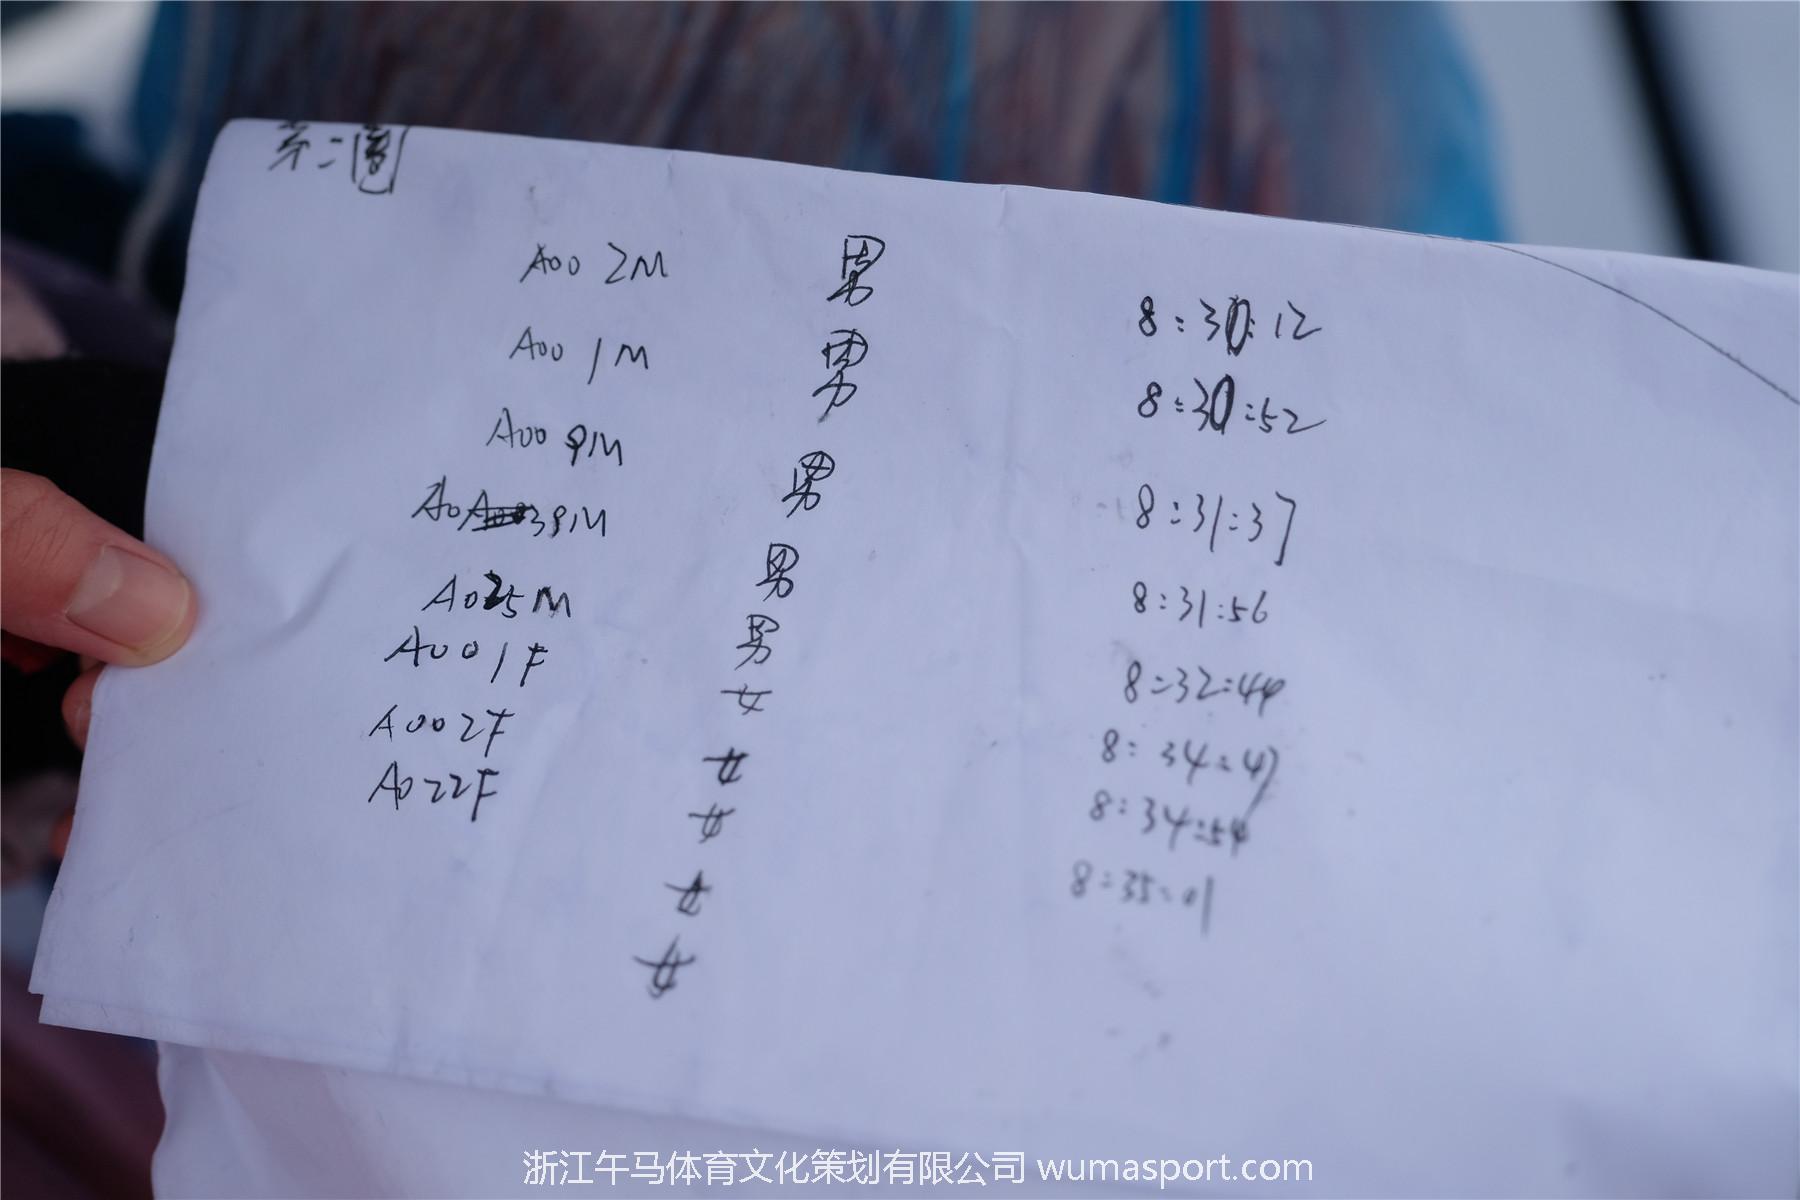 第二圈
A002M 男 8:30:12
A001M 男 8:30:52
A009M 男 8:31:37
A039M 男 8:31:56
A025M 男 8:32:44
A001F 女 8:34:47
A002F 女 8:34:54
A022F 女 8:35:01
女
女
浙江午马体育文化策划有限公司 wumasport.com